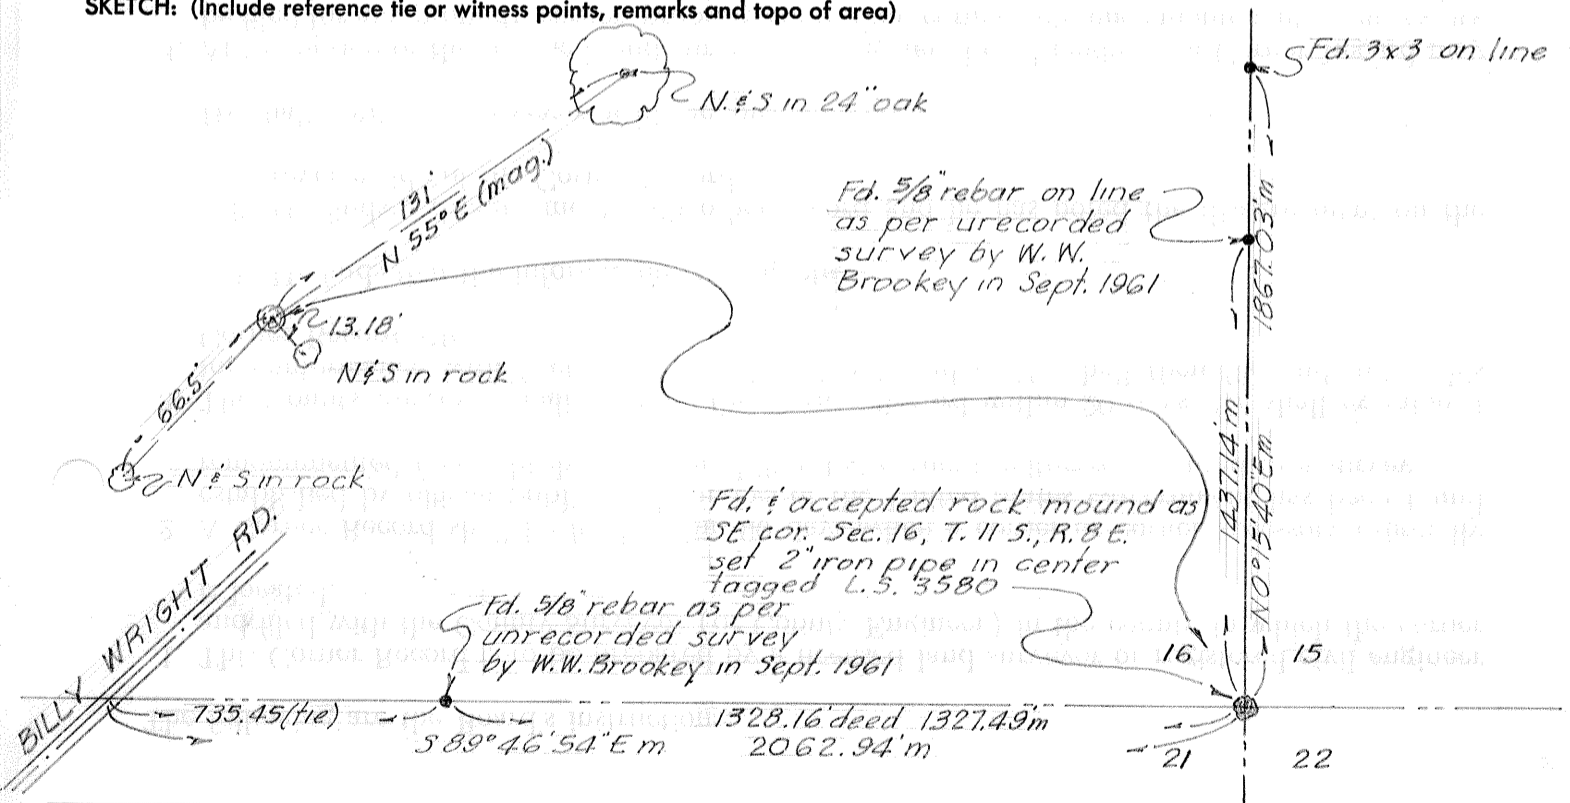 SKETCH: (Include reference tie or witness points, remarks and topo of area)
Fd. 3x3 on line
N. & S in 24" oak
131'
N 55° E (mag.)
Fd. 5/8" rebar on line
as per urecorded
survey by W. W.
Brookey in Sept. 1961
1867.03'm
13.18'
N & S in rock
66.5'
N & S in rock
1437.14'm
N0°15'40"E m
Fd. & accepted rock mound as
SE cor. Sec. 16, T. 11 S., R. 8 E.
set 2" iron pipe in center
tagged L.S. 3580
BILLY WRIGHT RD.
Fd. 5/8" rebar as per
unrecorded survey
by W.W. Brookey in Sept. 1961
16 15
735.45 (tie)
1328.16' deed 1327.49'm
S 89° 46' 54" E m
2062.94'm
21 22